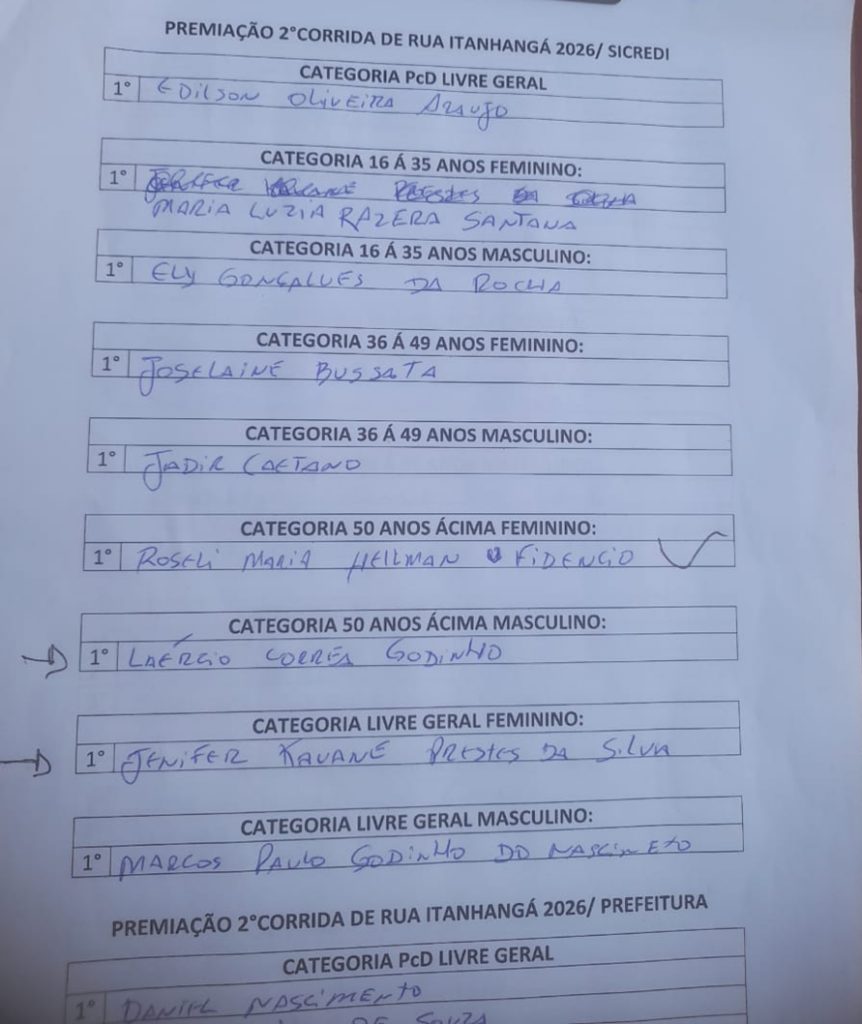 PREMIAÇÃO 2°CORRIDA DE RUA ITANHANGÁ 2026/ SICREDI
CATEGORIA PcD LIVRE GERAL
1° EDILSON OLIVEIRA ARAUJO
CATEGORIA 16 Á 35 ANOS FEMININO:
1°
MARIA LUZIA RAZERA SANTANA
CATEGORIA 16 Á 35 ANOS MASCULINO:
1° ELY GONÇALVES DA ROCHA
CATEGORIA 36 Á 49 ANOS FEMININO:
1° JOSELAINE BUSSATA
CATEGORIA 36 Á 49 ANOS MASCULINO:
1° JADIR CAETANO
CATEGORIA 50 ANOS ÁCIMA FEMININO:
1° ROSELI MARIA HELLMAN FIDENCIO
CATEGORIA 50 ANOS ÁCIMA MASCULINO:
1° LAÉRCIO CORRÊA GODINHO
CATEGORIA LIVRE GERAL FEMININO:
1° JENIFER KAUANE PRESTES DA SILVA
CATEGORIA LIVRE GERAL MASCULINO:
1° MARCOS PAULO GODINHO DO NASCIMETO
PREMIAÇÃO 2°CORRIDA DE RUA ITANHANGÁ 2026/ PREFEITURA
CATEGORIA PcD LIVRE GERAL
1° DANIEL NASCIMENTO
DE SOUZA